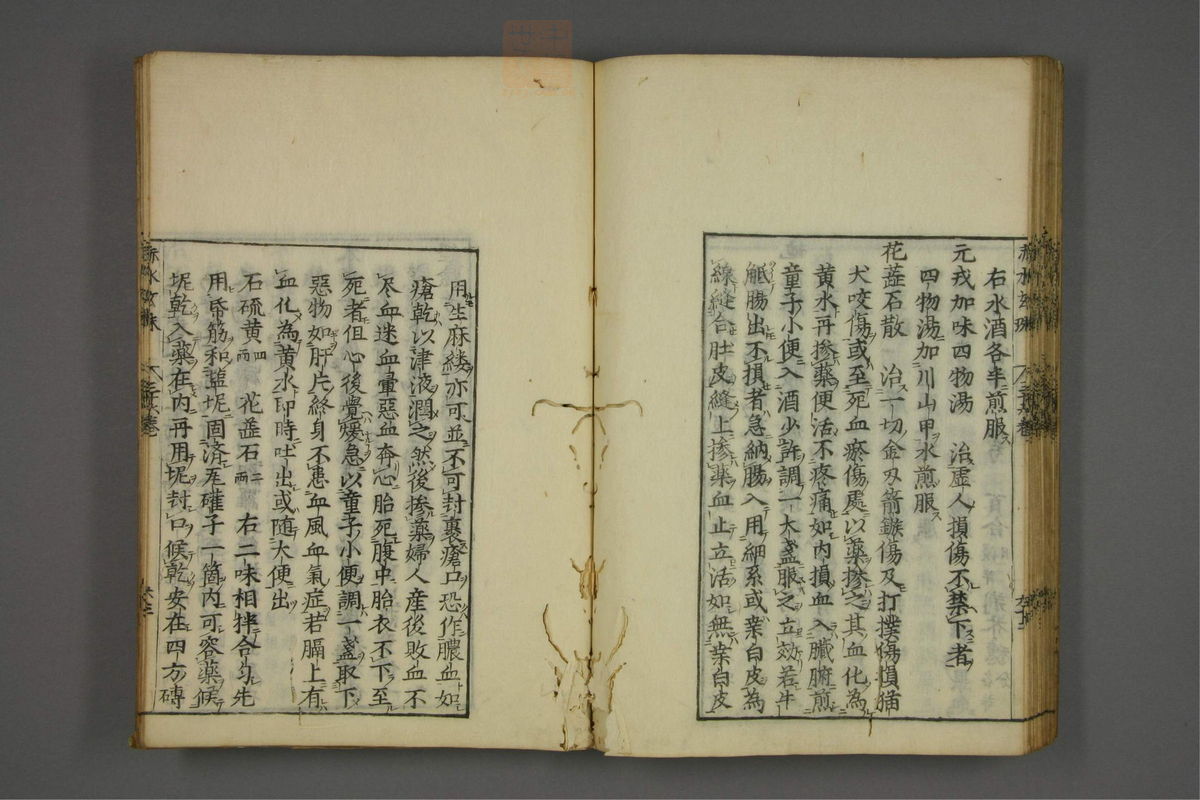 右水酒各半煎服
元戎加味四物湯　治虚人損傷不禁下者
四物湯加川山甲水煎服
花蕋石散　治一切金刃箭鏃傷及打撲傷損猫
犬咬傷或至死血瘀傷處以藥掺之其血化為
黄水再掺藥便活不疼痛如内損血入臟腑煎
童子小便入酒少許調一大盞服之立効若牛
觝腸出不損者急納腸入用細系或桒白皮為
線縫合肚皮縫上掺藥血止立活如無桒白皮
用生麻縷亦可並不可封裹瘡口恐作膿血如
瘡乾以津液潤之然後掺藥婦人産後敗血不
尽血迷血暈惡血奔心胎死腹中胎衣不下至
死者但心後覺煖急以童子小便調一盞取下
惡物如肝片終身不患血風血氣症若膈上有
血化為黄水即時吐出或随大便出
石硫黄四兩　花蕋石二兩　右二味相拌合匀先
用帋筋和盐坭固済瓦礶子一箇内可容藥候
坭乾入藥在内再用坭封口候乾安在四方磚